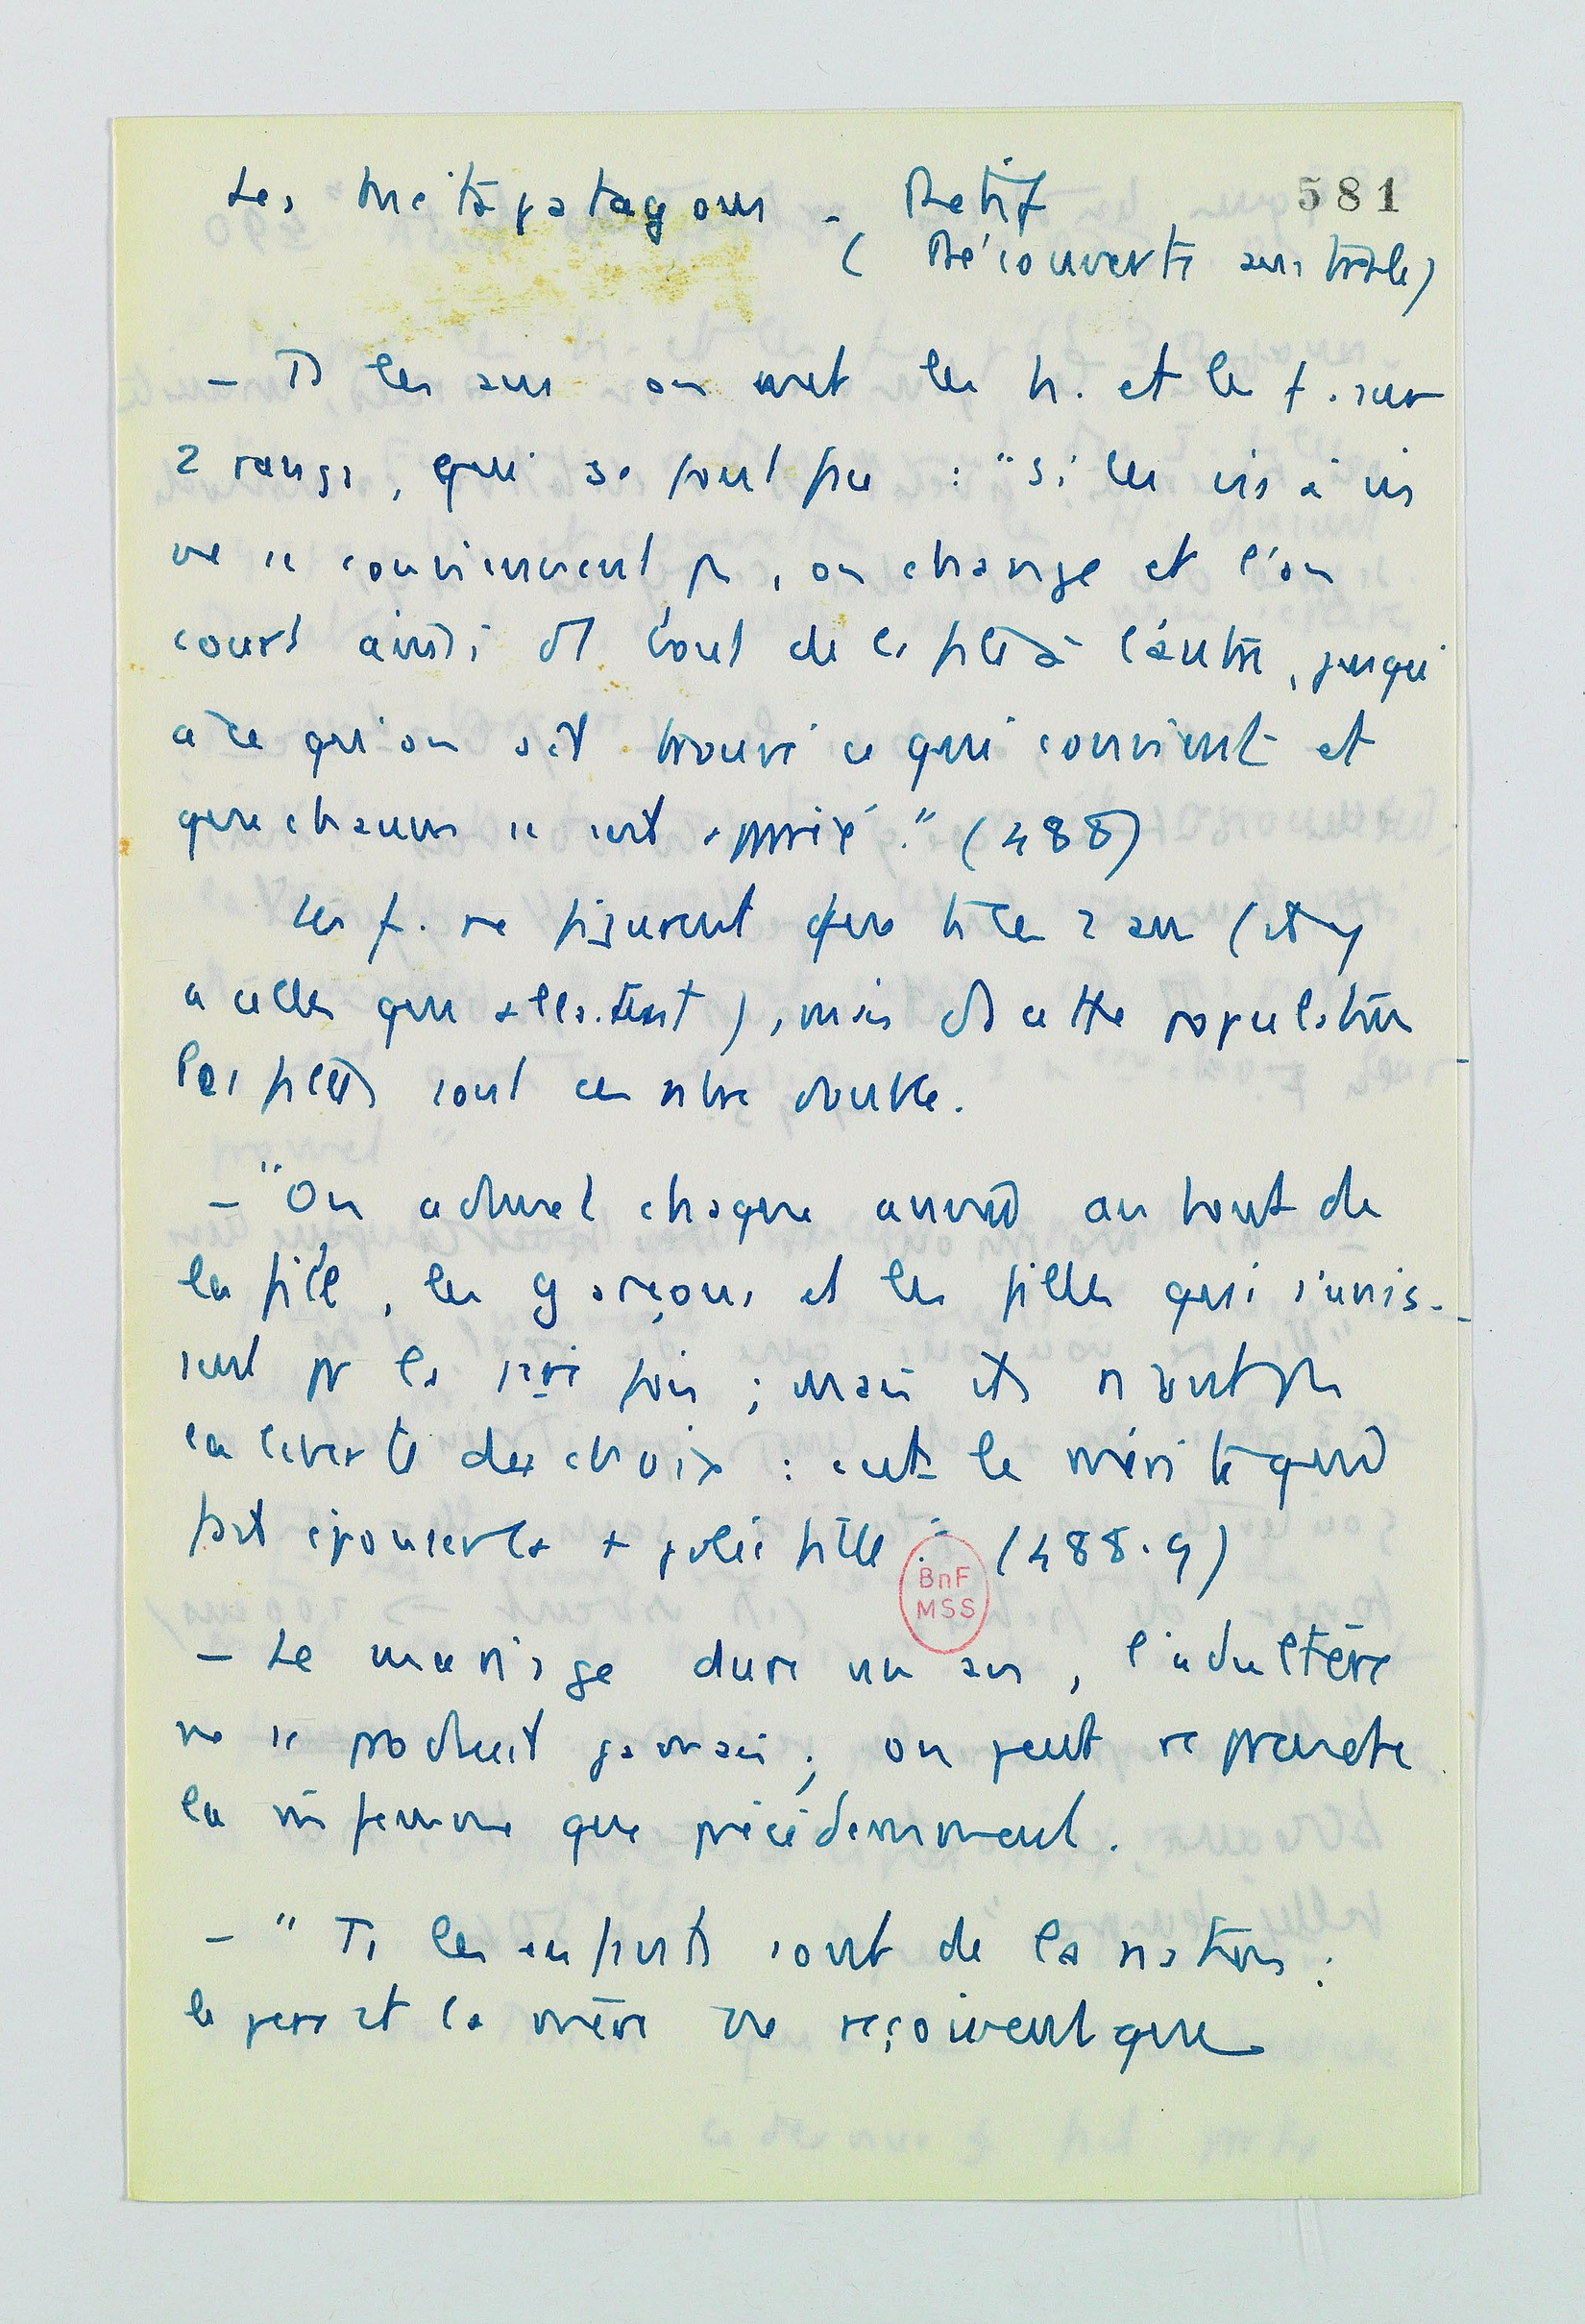 Les Mégapatagons - Retif
581
( Découverte australe)
- Ts les ans on met les h. et les f. sur
2 rangs, qui se font face : "Si les vis à vis
ne se conviennent pas, on change et l'on
court ainsi d'1 bout de la file à l'autre, jusqu'
à ce qu'on ait trouvé ce qui convient et
que chacun se soit apparié." (488)
Les f. ne figurent que ts les 2 ans (il y
a celles qui allaitent), mais ds cette population
les filles sont en nbre double.
- "On admet chaque année au bout de
la file, les garçons et les filles qui s'unis-
sent pr la 1ère fois ; mais ils n'ont pas
la liberté des choix : c'est le mérite qui
fait épouser la + jolie fille." (488.9)
BnF
MSS
- Le mariage dure un an, l'adultère
ne se produit jamais ; on peut reprendre
la m̂ femme que précédemment.
- " Ts les enfants sont de la nation ;
le père et la mère ne reçoivent que